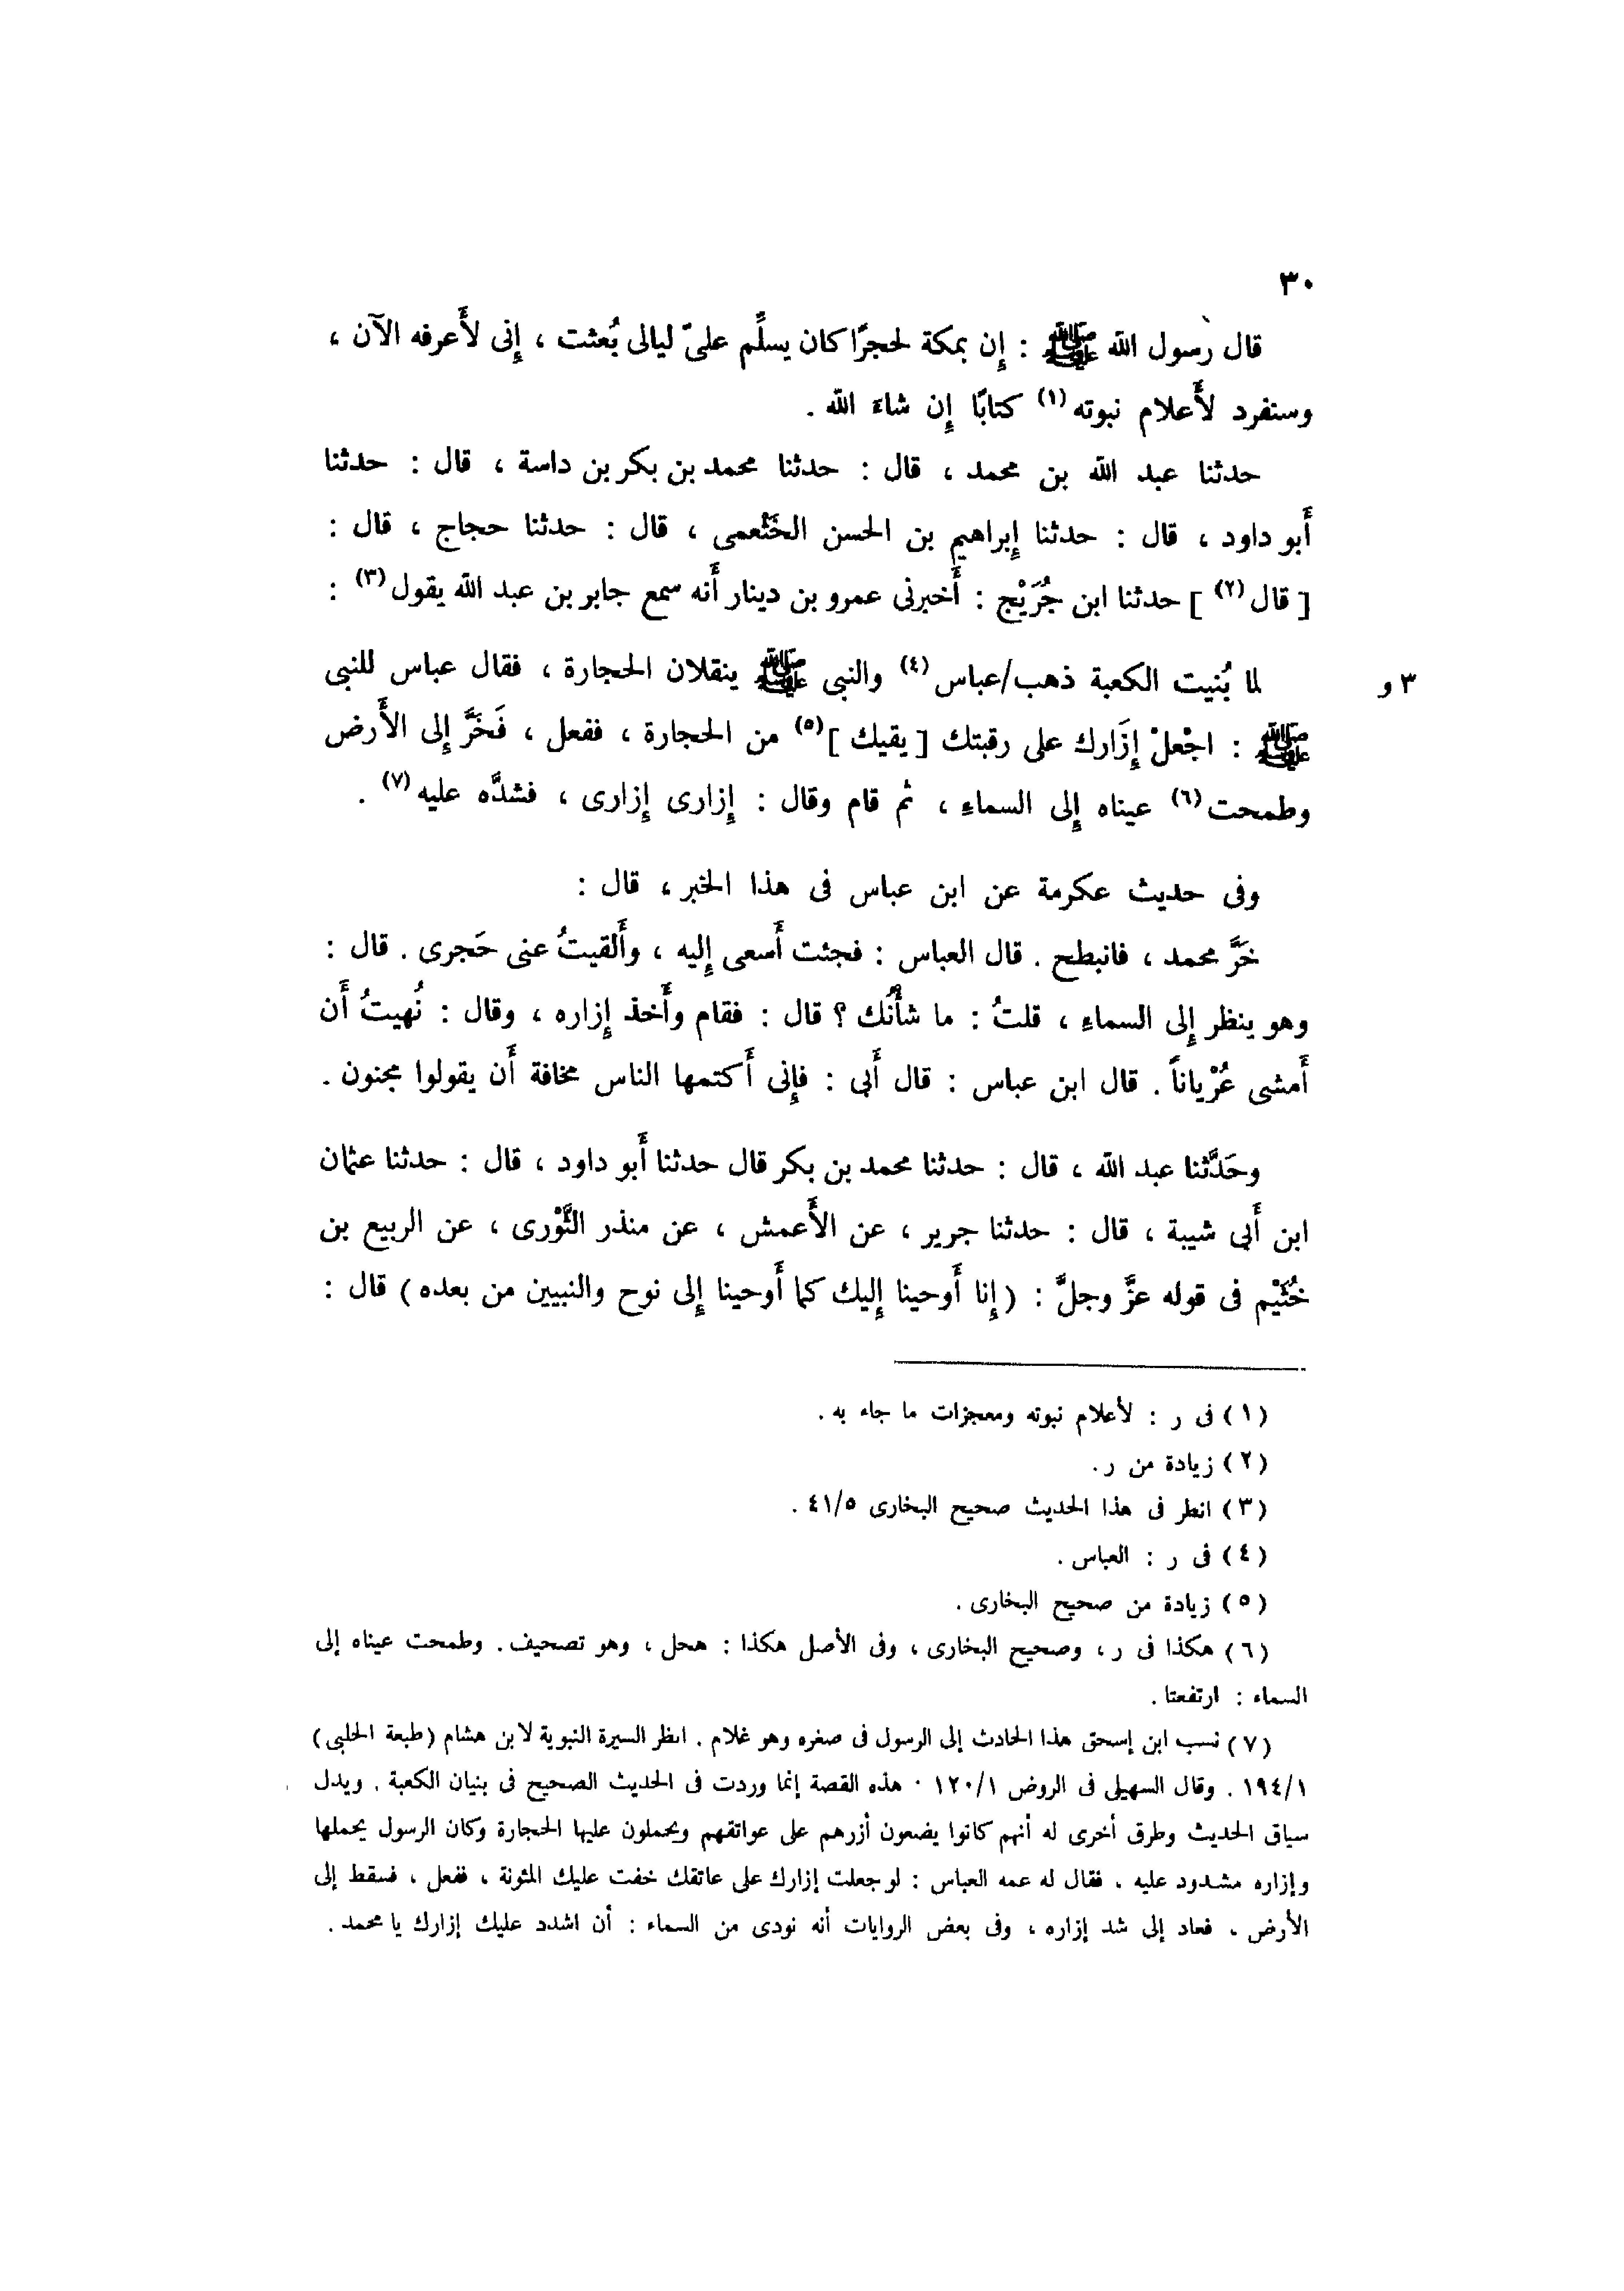 ٣٠
قال رسول الله ﷺ : إِن بمكة لحجرًا كان يسلِّم علىّ ليالى بُعثت ، إِنى لأَعرفه الآن ،
وسنفرد لأَعلام نبوته(١) كتابًا إِن شاءَ الله .
حدثنا عبد الله بن محمد ، قال : حدثنا محمد بن بكر بن داسة ، قال : حدثنا
أَبو داود ، قال : حدثنا إِبراهيم بن الحسن الخَثْعمى ، قال : حدثنا حجاج ، قال :
[ قال (٢) ] حدثنا ابن جُرَيْج : أَخبرنى عمرو بن دينار أَنه سمع جابر بن عبد الله يقول(٣) :
لما بُنيت الكعبة ذهب/عباس(٤) والنبى ﷺ ينقلان الحجارة ، فقال عباس للنبى
٣ و
ﷺ : اجْعلْ إِزَارك على رقبتك [ يقيك ](٥) من الحجارة ، ففعل ، فَخَرَّ إِلى الأَرض
وطمحت(٦) عيناه إِلى السماءِ ، ثم قام وقال : إِزارى إِزارى ، فشدَّه عليه(٧) .
وفى حديث عكرمة عن ابن عباس فى هذا الخبر ، قال :
خَرَّ محمد ، فانبطح . قال العباس : فجئت أَسعى إِليه ، وأَلقيتُ عنى حَجرى . قال :
وهو ينظر إِلى السماءِ ، قلتُ : ما شأْنُك ؟ قال : فقام وأَخذ إِزاره ، وقال : نُهيتُ أَن
أَمشى عُرْياناً . قال ابن عباس : قال أَبى : فإِنى أَكتمها الناس مخافة أَن يقولوا مجنون .
وحَدَّثنا عبد الله ، قال : حدثنا محمد بن بكر قال حدثنا أَبو داود ، قال : حدثنا عثمان
ابن أَبى شيبة ، قال : حدثنا جرير ، عن الأَعمش ، عن منذر الثَّوْرى ، عن الربيع بن
خُثَيْم فى قوله عزَّ وجلَّ : ( إِنا أَوحينا إِليك كما أَوحينا إِلى نوح والنبيين من بعده ) قال :
(١) فى ر : لأعلام نبوته ومعجزات ما جاء به .
(٢) زيادة من ر .
(٣) انظر فى هذا الحديث صحيح البخارى ٤١/٥ .
(٤) فى ر : العباس .
(٥) زيادة من صحيح البخارى .
(٦) هكذا فى ر ، وصحيح البخارى ، وفى الأصل هكذا : همحل ، وهو تصحيف . وطمحت عيناه إلى
السماء : ارتفعتا .
(٧) نسب ابن إسحق هذا الحادث إلى الرسول فى صغره وهو غلام . انظر السيرة النبوية لابن هشام (طبعة الحلبى)
١٩٤/١ . وقال السهيلى فى الروض ١٢٠/١ . هذه القصة إنما وردت فى الحديث الصحيح فى بنيان الكعبة . ويدل
سياق الحديث وطرق أخرى له أنهم كانوا يضعون أزرهم على عواتقهم ويحملون عليها الحجارة وكان الرسول يحملها
وإزاره مشدود عليه ، فقال له عمه العباس : لو جعلت إزارك على عاتقك خفت عليك المئونة ، ففعل ، فسقط إلى
الأرض ، فعاد إلى شد إزاره ، وفى بعض الروايات أنه نودى من السماء : أن اشدد عليك إزارك يا محمد .